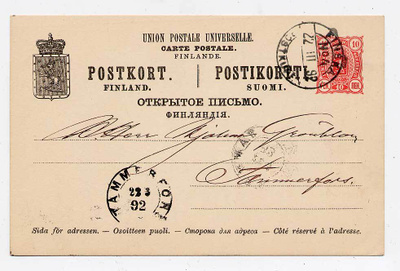 UNION POSTALE UNIVERSELLE.
CARTE POSTALE.
FINLANDE.
POSTKORT. POSTIKORTTI.
FINLAND. SUOMI.
ОТКРЫТОЕ ПИСЬМО.
ФИНЛЯНДІЯ.
10 10
Herr Hjalmar
Tammerfors.
TAMMERFORS
22 3
92
Sida för adressen. - Osoitteen puoli. - Сторона для адреса - Côté réservé à l'adresse.